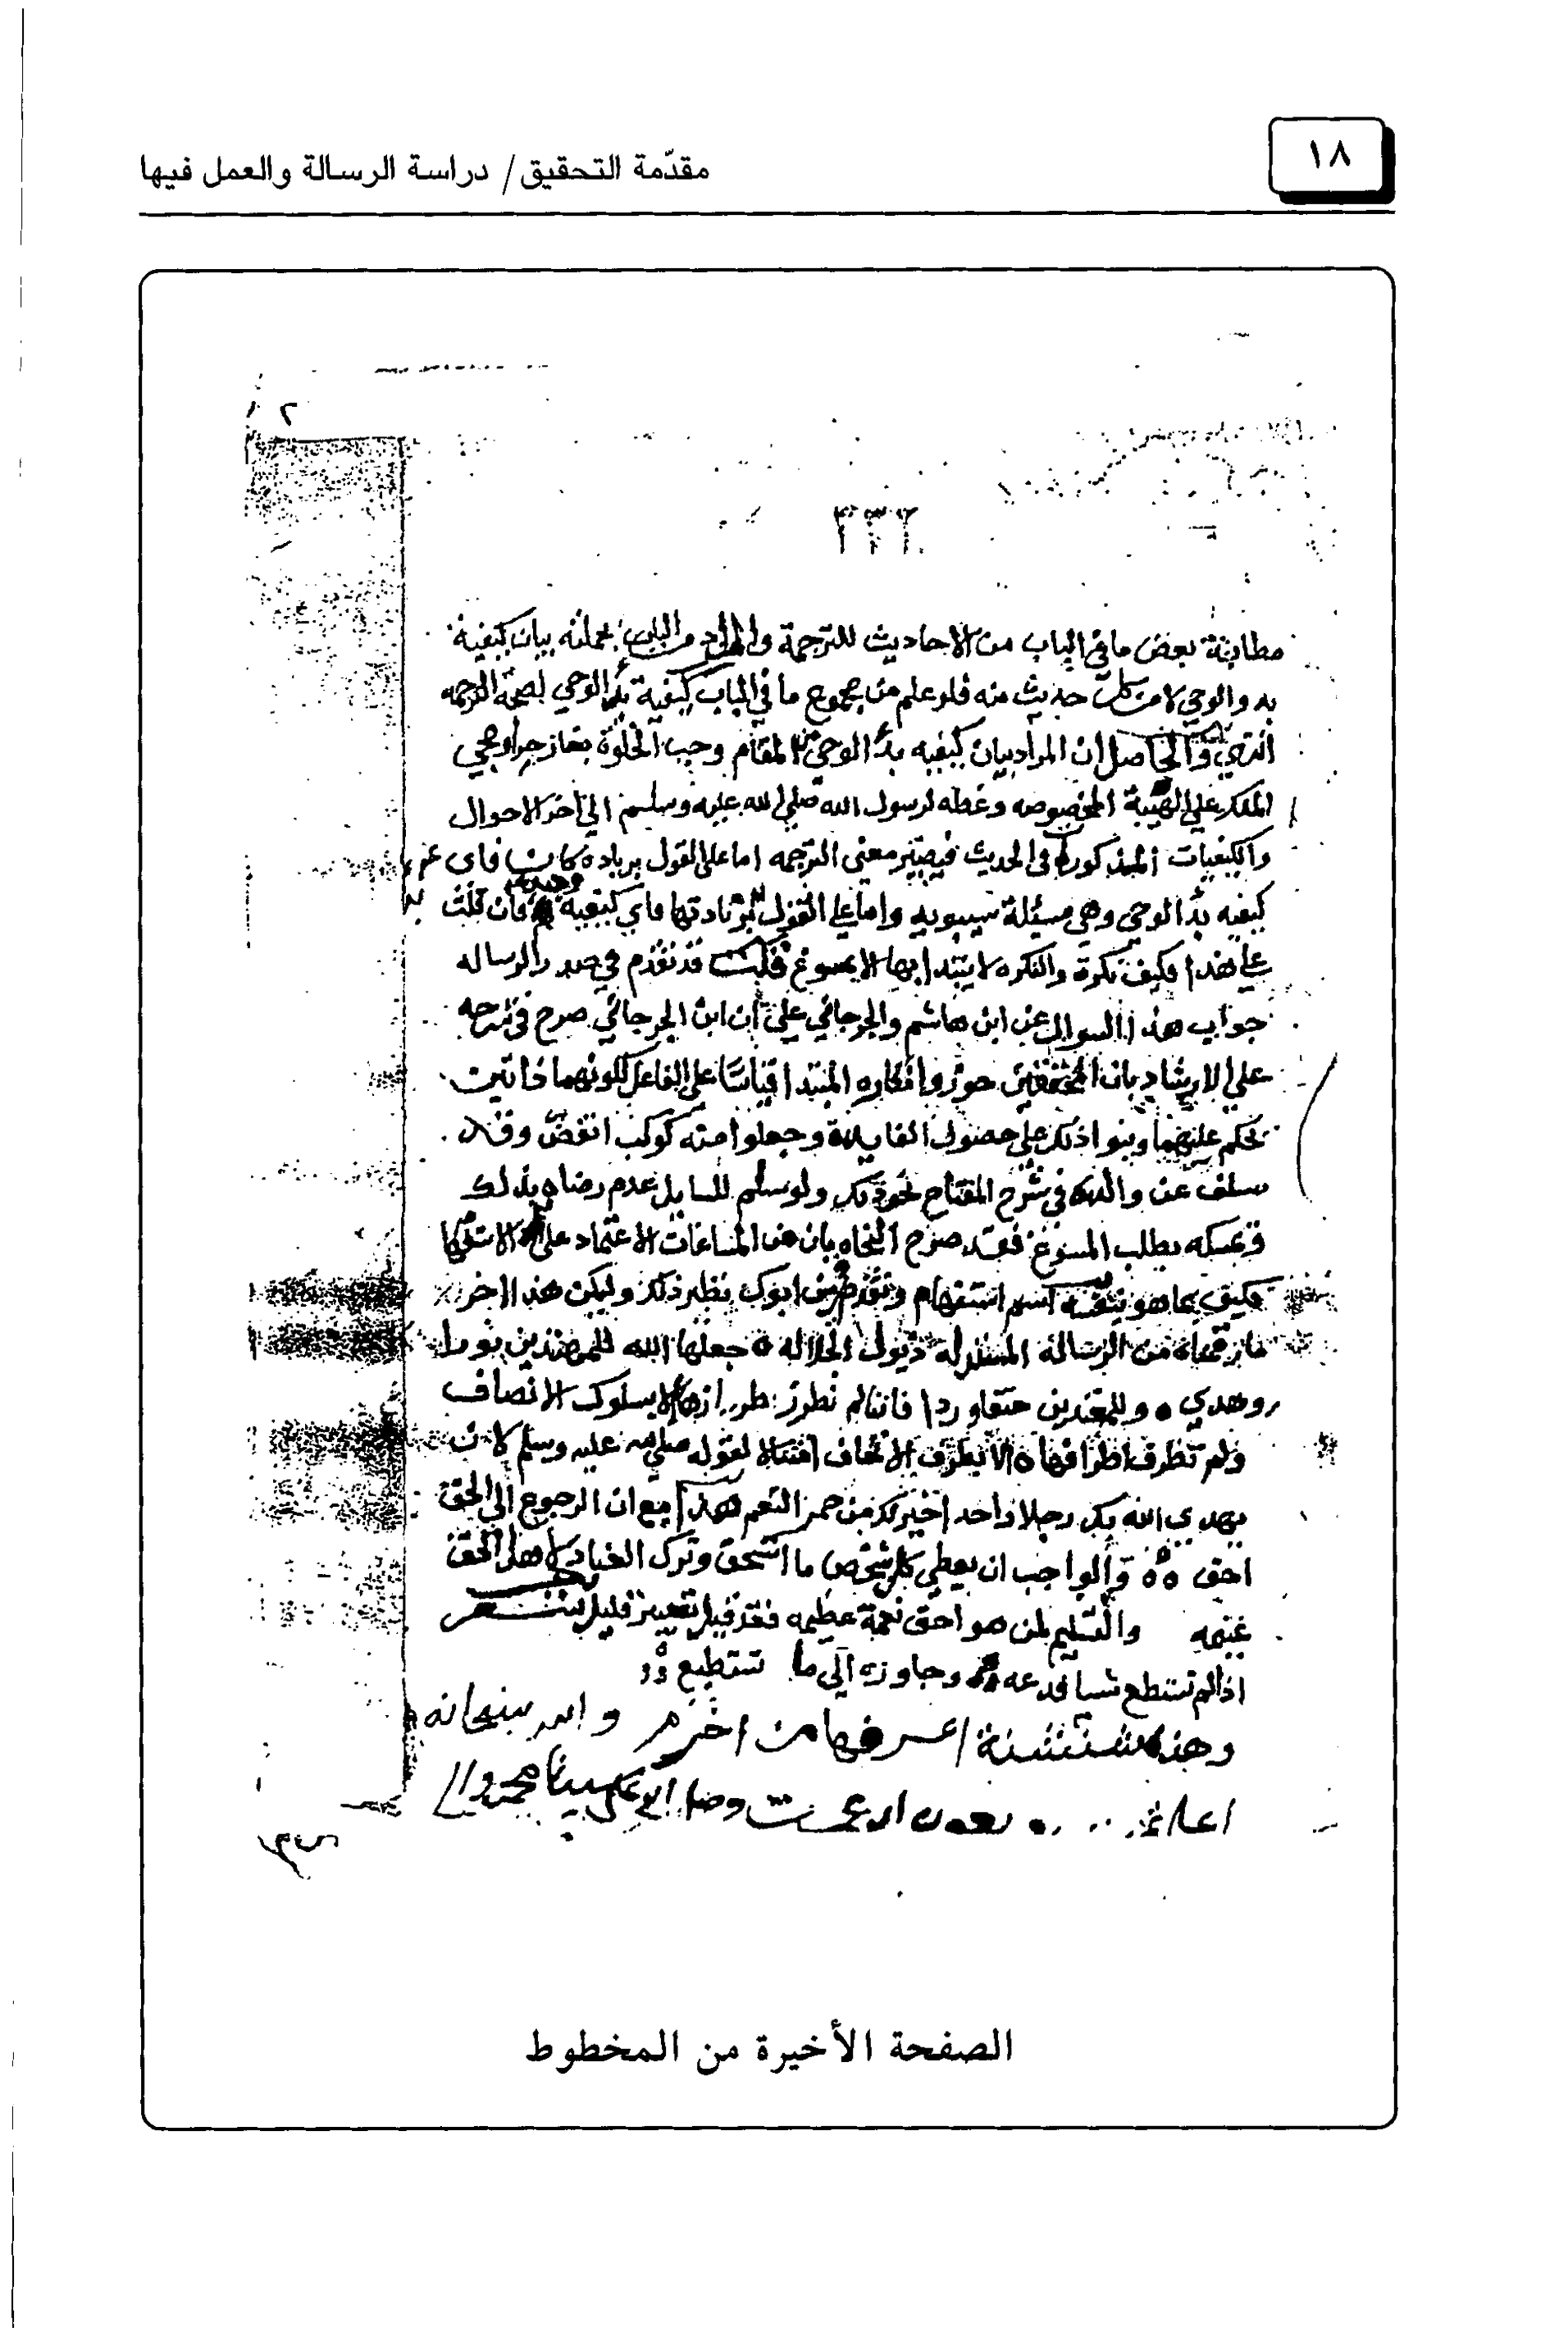 ١٨
مقدّمة التحقيق / دراسة الرسالة والعمل فيها
٣٣٢
مطابقة بعض ما في الباب من الاحاديث للترجمة والمراد من الباب بجملته بيان كيفية
بدو الوحي لا من كل حديث منه فلو علم من مجموع ما في الباب كيفية بدأ الوحي لصحة الترجمه
انتهي والحاصل ان المراد بيان كيفيه بدأ الوحي المقام وحبب الخلوة بغار حرا ومجي
الملك علي الهيئة المخصوصه وغطه لرسول الله صلي الله عليه وسلم الي اخر الاحوال
والكيفيات المذكورة في الحديث معنى الترجمه اما على القول بزيادة كان فاى
كيفيه بدأ الوحي وهي مسئلة سيبويه واما علي القول زيادتها فاي كيفيه فان قلت
علي هذا فكيف نكرة والنكره لا يبتدا بها الا بمسوغ قلت قد تقدم في صدر الرساله
جواب هذا السوال عن ابن هاشم والجرجاني علي ان ابن الجرجاني صرح في شرحه
علي الارشاد بان المحققين جوزوا انكاره المبتدا قياسًا على الفاعل لكونهما ذاتين
نحكم عليهما وبنوا ذلك علي حصول الفايدة وجعلوا منه كوكب انقض وقد
سلف عن والده في شرح المفتاح نحو ذلك ولو سلم للسايل عدم رضاه بذلك
وتمسكه بطلب المسوغ فقد صرح النحاه بان من المساغات الاعتماد على الاستفهام
فكيف بما هو بنفسه اسم استفهام ابوك نظير ذلك وليكن هذا اخر
ما رقمناه من الرسالة المسدلة ذيول الجلاله جعلها الله للمهتدين نورا
وهدي فاننا لم نطرز طرازها الا بسلوك الانصاف
ولم نظرف اطرافها الا بطرف الاتحاف امتثالا لقوله صلي الله عليه وسلم لان
يهدي الله بك رجلا واحد اخير لك من حمر النعم هذا مع ان الرجوع الي الحق
احق والواجب ان يعطي كل شخص ما استحق وترك العناد لاهل الحق
غنيمه والتسليم لمن هو احق نعمة عظيمه فقد قيل
اذا لم تستطع شيا فدعه وجاوزه الي ما تستطيع
وهذه شنشنة اعرفها من اخزم والله سبحانه
اعلم تمت وصلى الله على سيدنا محمد وآله
الصفحة الأخيرة من المخطوط